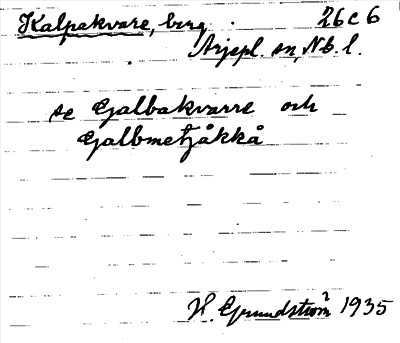 Kalpakvare, berg. 26 C 6
Arjepl. sn, Nb. l.
se Galbakvarre och
Galbmetjåkkå
H. Grundström 1935